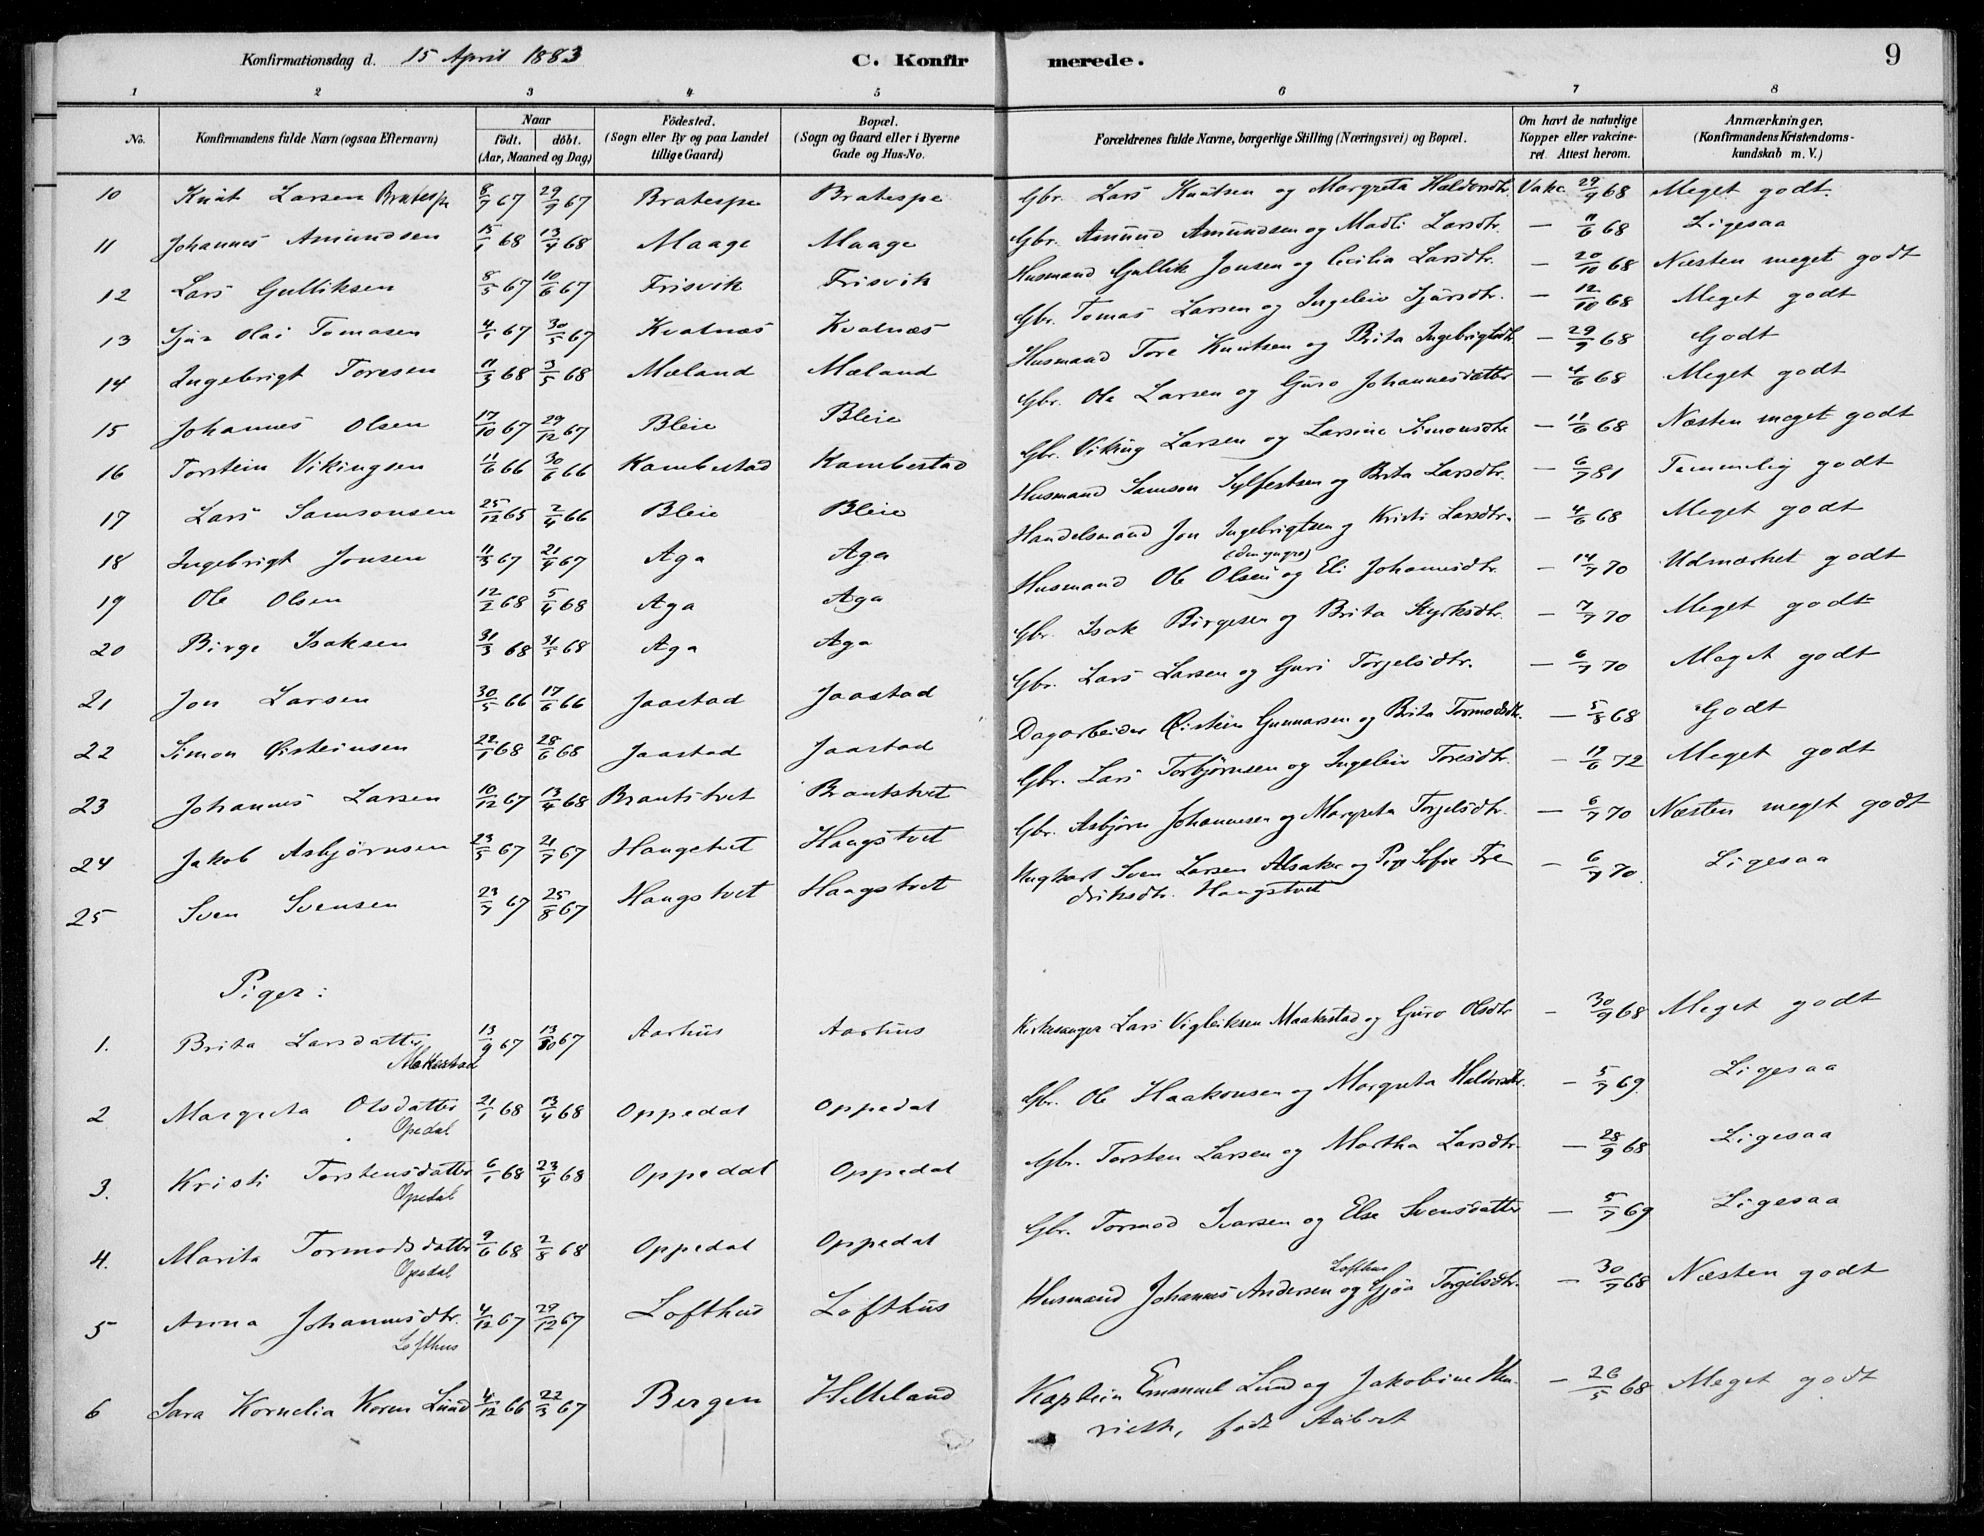 Konfirmationsdag d. 15 April 1883 C. Konfirmerede. 9
1 2 3 4 5 6 7 8
No. Konfirmandens fulde Navn (ogsaa Efternavn) Naar födt. döbt. (Aar, Maaned og Dag) Födested. (Sogn eller By og paa Landet tillige Gaard) Bopæl. (Sogn og Gaard eller i Byerne Gade og Hus-No. Forældrenes fulde Navne, borgerlige Stilling (Næringsvei) og Bopæl. Om havt de naturlige Kopper eller vakcineret. Attest herom. Anmærkninger. (Konfirmandens Kristendomskundskab m. V.)
10 Knut Larsen Bratespe 8/7 67 29/9 67 Bratespe Bratespe Gbr. Lars Knutsen og Margreta Haldorsdtr. Vakc. 29/9 68 Meget godt.
11 Johannes Amundsen 15/1 68 13/4 68 Maage Maage Gbr. Amund Amundsen og Madli Larsdtr. — 11/6 68 Ligesaa
12 Lars Gulliksen 8/5 67 10/6 67 Frisvik Frisvik Husmand Gullik Jonsen og Cecilia Larsdtr. — 20/10 68 Næsten meget godt
13 Sjur Olai Tomasen 4/1 67 30/5 67 Kvalnæs Kvalnæs Gbr. Tomas Larsen og Ingeleiv Sjursdtr. — 12/10 68 Meget godt
14 Ingebrigt Toresen 11/3 68 3/5 68 Mæland Mæland Husmand Tore Knutsen og Brita Ingebrigtsdtr — 29/9 68 Godt
15 Johannes Olsen 17/10 67 29/12 67 Bleie Bleie Gbr. Ole Larsen og Guro Johannesdatter — 4/6 68 Meget godt
16 Torstein Vikingsen 11/6 66 30/6 66 Kambestad Kambestad Gbr. Viking Larsen og Larsine Simonsdtr — 11/6 68 Næsten meget godt
17 Lars Samsonsen 25/12 65 2/4 66 Bleie Bleie Husmand Samson Sylfestsen og Brita Larsdtr. — 6/7 81 Temmelig godt
18 Ingebrigt Jonsen 11/3 67 21/4 67 Aga Aga Handelsmand Jon Ingebrigtsen og Kristi Larsdtr. — 4/6 68 Meget godt
19 Ole Olsen 12/2 68 5/4 68 Aga Aga Husmand Ole Olsen (den yngre) og Eli Johannesdtr. — 14/7 70 Udmærket godt
20 Birge Isaksen 31/3 68 31/5 68 Aga Aga Gbr. Isak Birgesen og Brita Styrksdtr. — 7/7 70 Meget godt
21 Jon Larsen 30/5 66 17/6 66 Jaastad Jaastad Gbr. Lars Larsen og Guri Torjelsdtr. — 6/7 70 Meget godt
22 Simon Øisteinsen 22/1 68 28/6 68 Jaastad Jaastad Dagarbeider Øistein Gunnarsen og Brita Tormodsdtr. — 5/8 68 Godt
23 Johannes Larsen 10/12 67 13/4 68 Brantstvet Brantstvet Gbr. Lars Torbjørnsen og Ingeleiv Toresdtr. — 19/6 72 Meget godt
24 Jakob Asbjørnsen 23/5 67 21/7 67 Haugstvet Haugstvet Gbr. Asbjørn Johannesen og Margreta Torjelsdtr. — 6/7 70 Næsten meget godt
25 Sven Svensen 23/7 67 25/8 67 Haugstvet Haugstvet Ungkarl Sven Larsen Alsaker og Pige Sofie Fre — 6/7 70 Ligesaa
driksdtr. Haugstvet
Piger:
1. Brita Larsdatter 13/9 67 13/10 67 Aarhus Aarhus Kirkesanger Lars Vigleiksen Maakestad og Guro Olsdtr — 30/9 68 Meget godt
Makestad
2 Margreta Olsdatter 21/1 68 13/4 68 Oppedal Oppedal Gbr. Ole Haakonsen og Margreta Haldorsdtr. — 5/7 69 Ligesaa
Opedal
3. Kristi Torstensdatter 6/1 68 23/4 68 Oppedal Oppedal Gbr. Torsten Larsen og Martha Larsdtr. — 28/9 68 Ligesaa
Opedal
4. Marita Tormodsdatter 9/6 68 2/8 68 Oppedal Oppedal Gbr. Tormod Ivarsen og Else Svensdatter — 5/7 69 Ligesaa
Opedal
5 Anna Johannesdtr. 4/12 67 29/12 67 Lofthus Lofthus Husmand Johannes Andersen Lofthus og Sjøa Torgilsdtr. — 30/9 68 Næsten godt
Lofthus
6 Sara Kornelia Koren Lund 4/12 66 22/3 67 Bergen Helleland Kaptein Emanuel Lund og Jakobine Hen — 26/5 68 Meget godt
riette, født Aubert